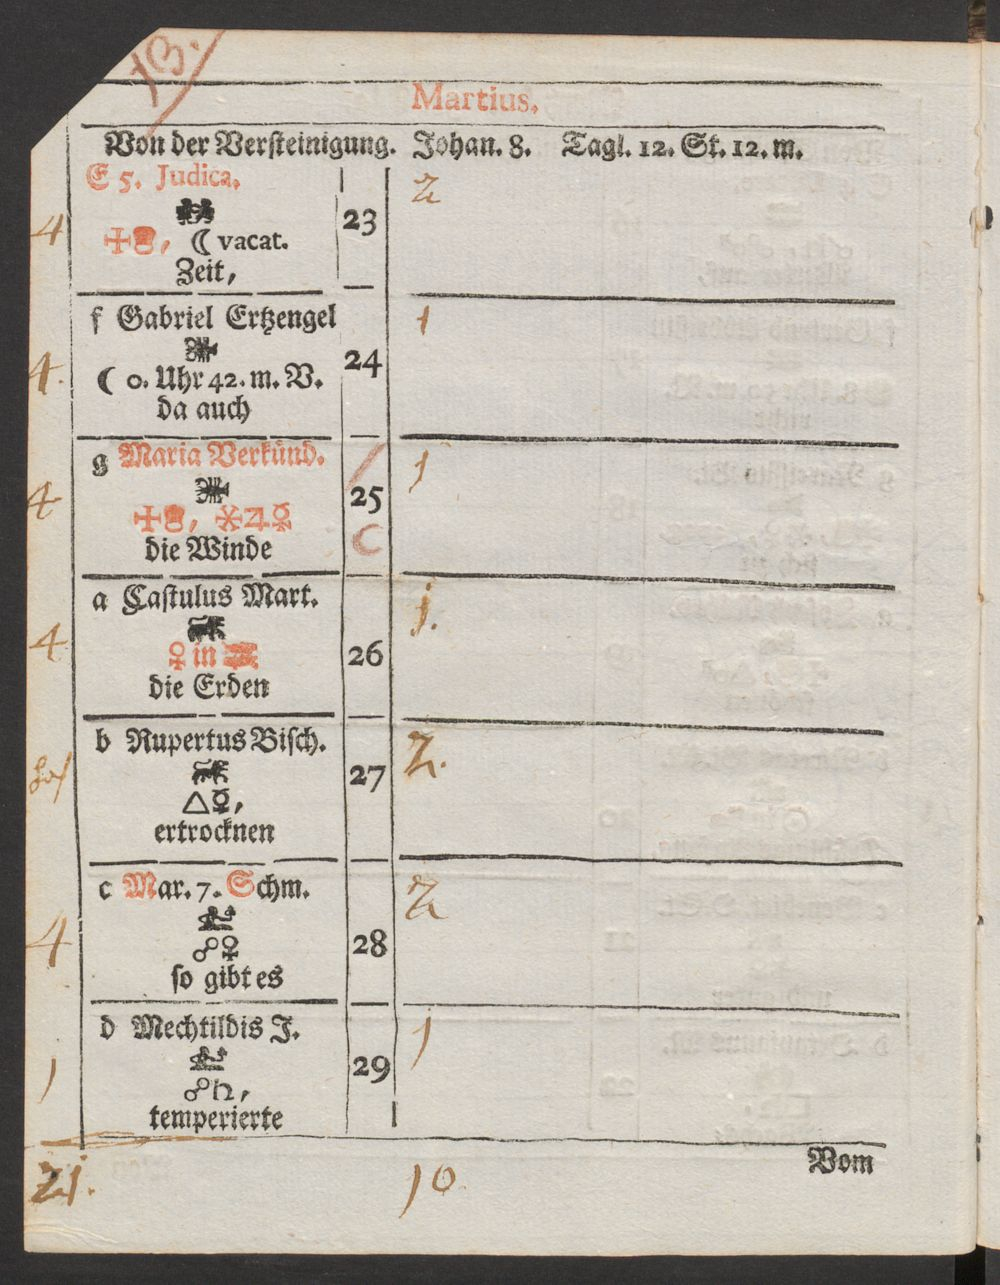 13.
Martius.
Von der Versteinigung. Johan. 8. Tagl. 12. St. 12. m.
E 5. Judica. 2
4 23
☾ vacat.
Zeit,
f Gabriel Ertzengel 1
4. 24
☾ 0. Uhr 42. m. V.
da auch
g Maria Verkünd. 1
4 25
☾
die Winde
a Castulus Mart. j.
4 ♀ in 26
die Erden
b Rupertus Bisch. 2.
27
△☿,
ertrocknen
c Mar. 7. Schm. 2
4 ☍♀ 28
so gibt es
d Mechtildis J. 1
1 29
☍♄,
temperierte
Vom
21. 10